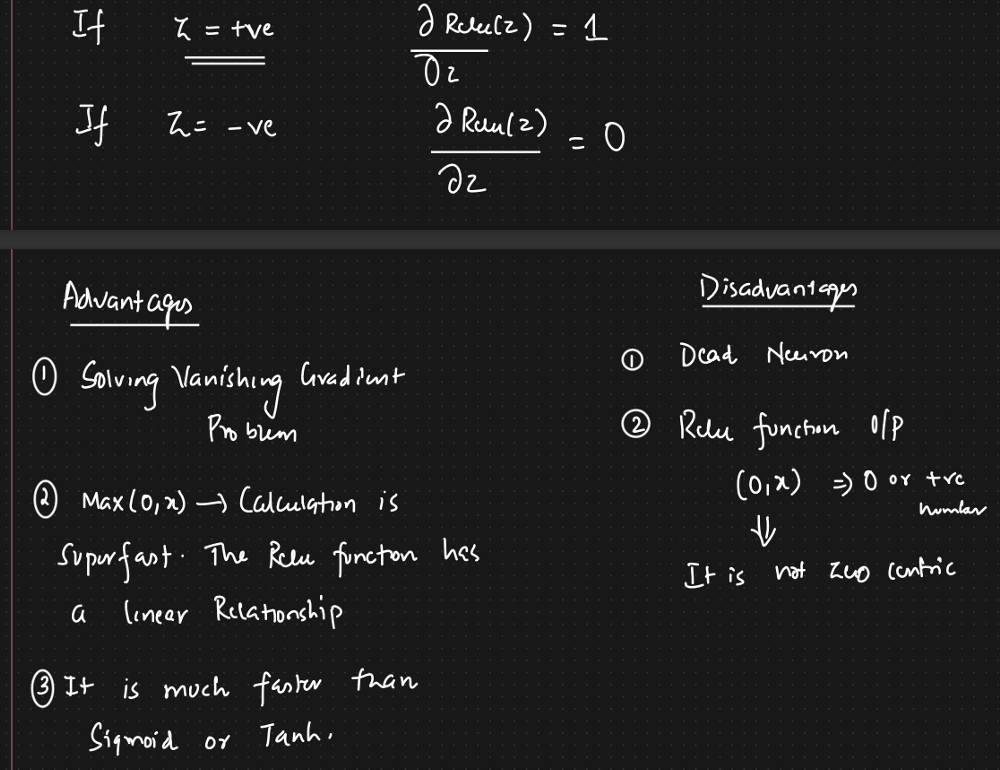 If z = +ve ∂ Relu(z) = 1
∂z
If z = -ve ∂ Relu(z) = 0
∂z
Advantages
① Solving Vanishing Gradient
Problem
② Max(0,x) → Calculation is
Superfast. The Relu function has
a linear Relationship
③ It is much faster than
Sigmoid or Tanh.
Disadvantages
① Dead Neuron
② Relu function O/P
(0,x) ⇒ 0 or +ve
number
⇓
It is not zero centric